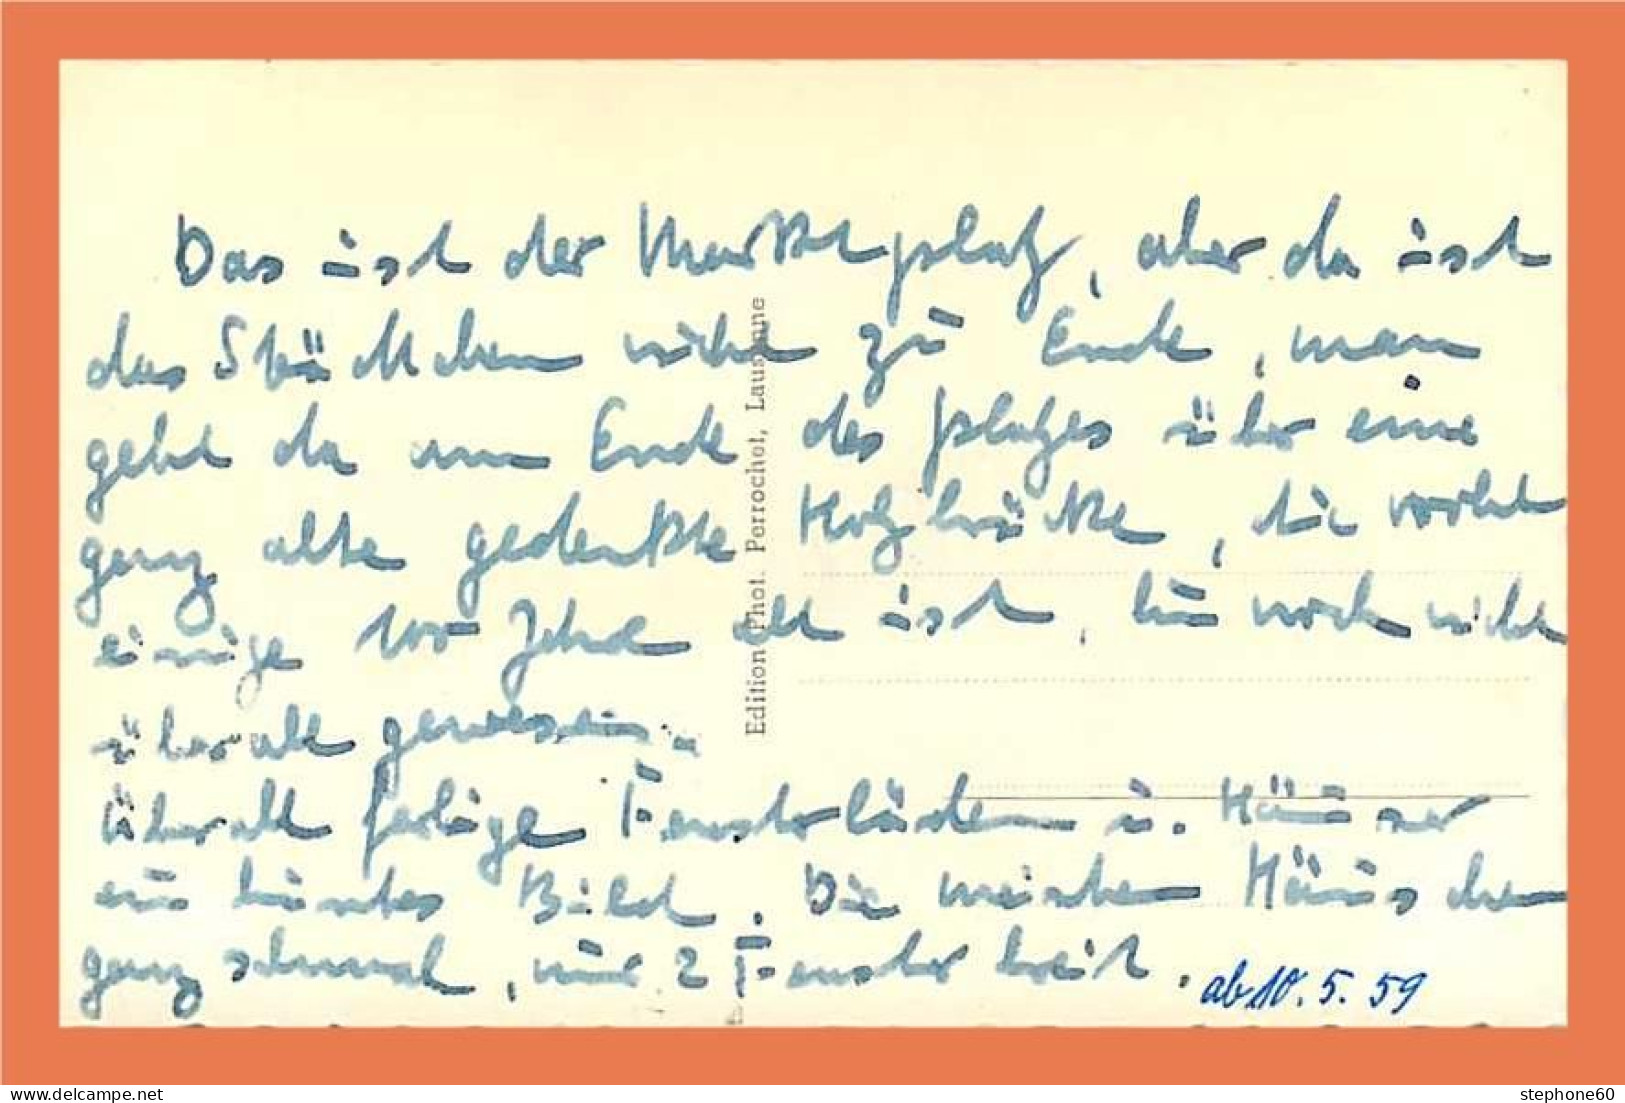 Das ist der Marktplatz, aber da ist
das Städtchen nicht zu Ende, man
geht da am Ende des Platzes über eine
ganz alte gedeckte Holzbrücke, die wohl
einige 100 Jahre alt ist, bin noch nicht
überall gewesen.
Überall farbige Fensterläden u. Häuser
ein buntes Bild. Die meisten Häuschen
ganz schmal, nur 2 Fenster breit.
ab 10.5.59
Edition Phot. Perrochet, Lausanne
stephone60